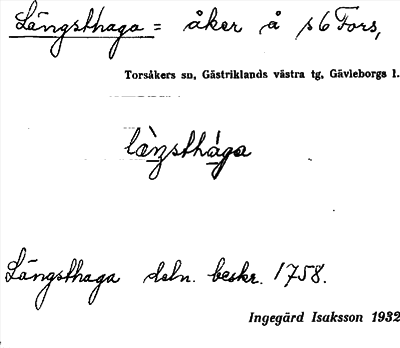 Längsthaga = åker å s6 Fors,
Torsåkers sn, Gästriklands västra tg, Gävleborgs l.
Längsthaga deln. beskr. 1758.
Ingegärd Isaksson 1932